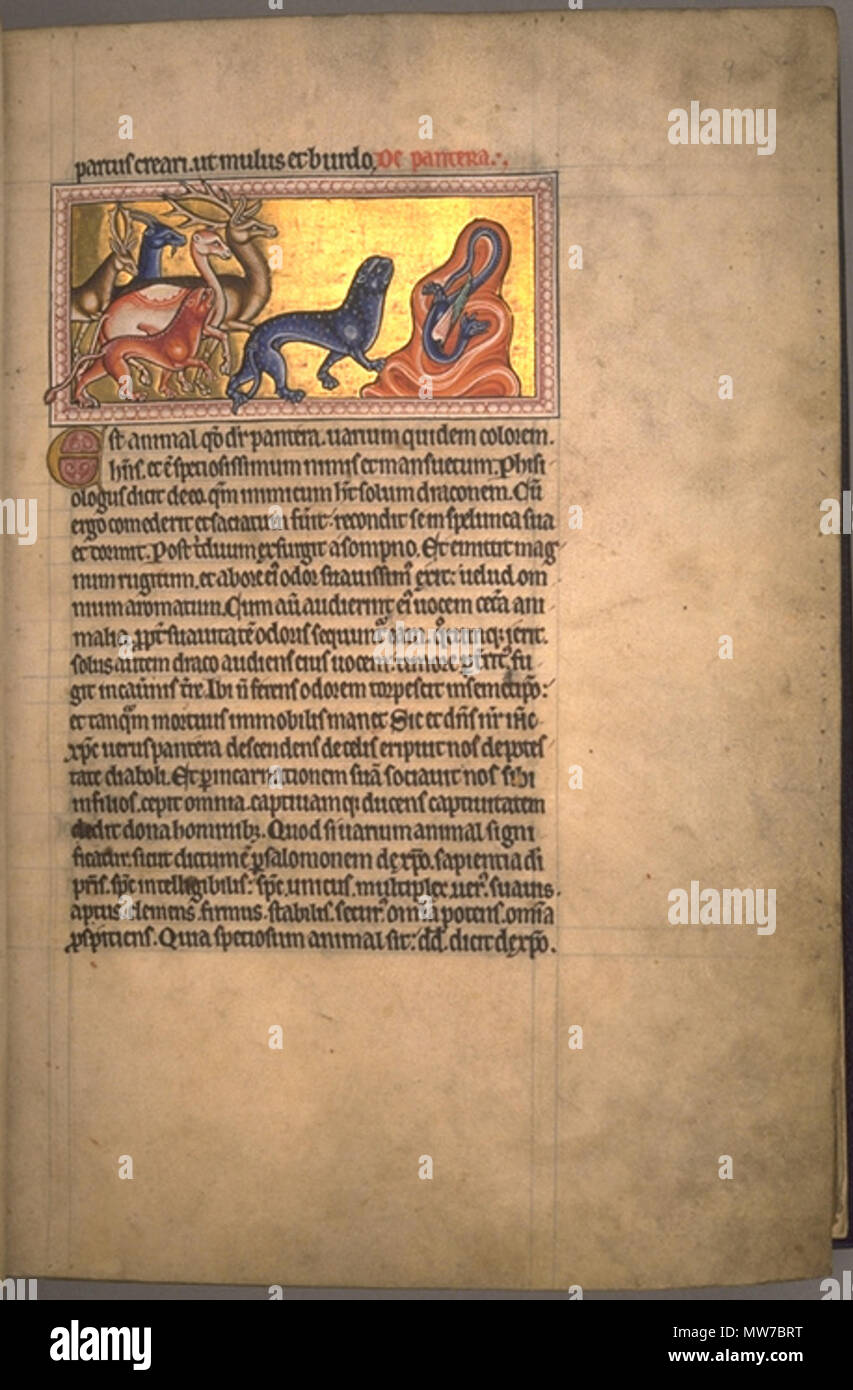 9
partus creari. ut mulus et burdo. De pantera.
Est animal qd̄ dr̄ pantera. uarium quidem colorem.
hn̄s. et ē speciosissimum nimis et mansuetum. Phisi
ologus dicit de eo. qm̄ inimicum hт̄ solum draconem. Cū
ergo comederit et saciatum fūit. recondit se in spelunca sua
et dormit. Post t̄duum exsurgit a sompno. Et emittit mag
num rugitum. et ab ore eiꝰ odor suauissimꝰ exit: uelud om
nium aromatum. Cum aū audierint eiꝰ uocem cetera ani
malia. ꝓpt̄ suauitatē odoris sequunt᷑ eam. quocunq; ierit.
solus autem draco audiens eius uocem. timore ꝑt̄rit᷑. fu
git in cauernis tr̄e. Ibi n̄ ferens odorem torpescit in semetip̄o:
et tanqm̄ mortuus immobilis manet. Sic et dn̄s nr̄ ih̄c
xp̄c uerus pantera descendens de celis eripuit nos de potes
tate diaboli. Et ꝑ incarnationem suā sociauit nos sibi
in filios. cepit omnia. captiuam q; ducens captiuitatem
dedit dona hominibꝫ. Quod si uarium animal signi
ficatur. sicut dictum ē ꝑ salomonem de xp̄o. sapientia di
pr̄is. sp̄c intelligibilis: sp̄c. unicus. multiplex. uerꝰ. suauis.
aptus. clemens. firmus. stabilis. securꝰ. om̄ia potens. om̄ia
ꝓspiciens. Quia speciosum animal sit: dd̄. dicit de xp̄o.
alamy
Image ID: MW7BRT
www.alamy.com